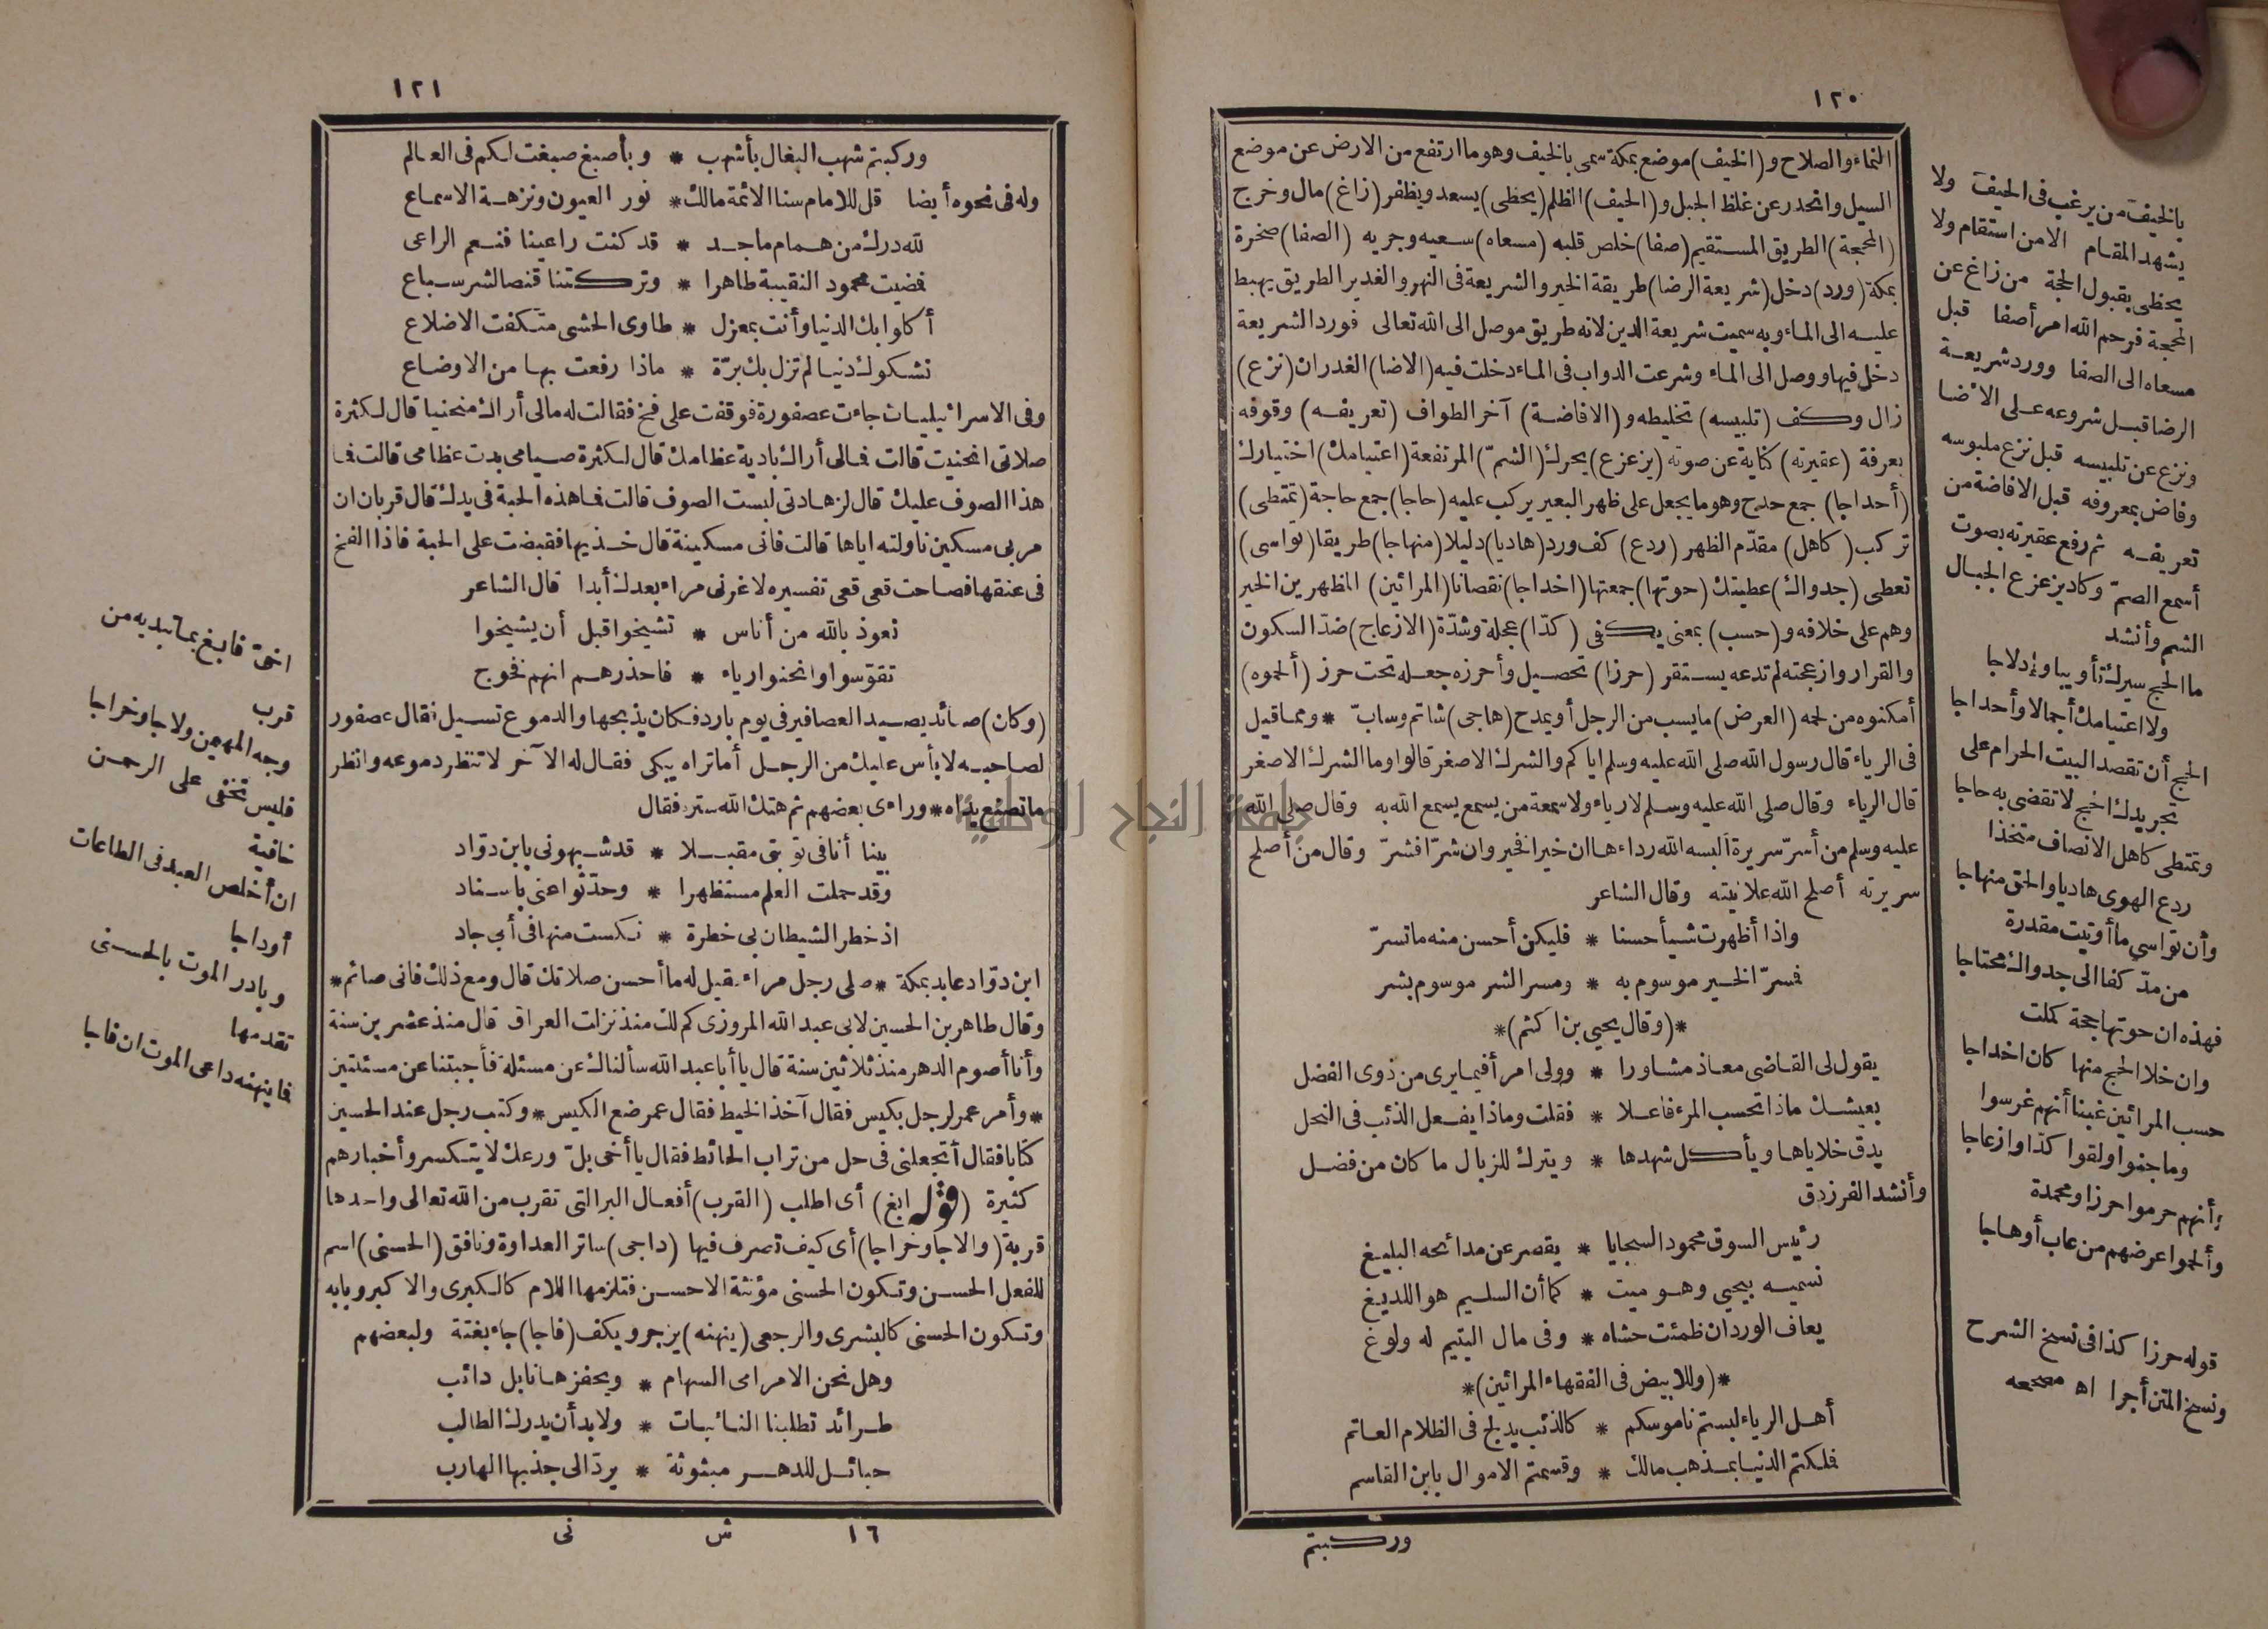 ١٢٠
النماء والصلاح و(الخيف) موضع بمكة سمى بالخيف وهو ما ارتفع من الارض عن موضع
السيل وانحدر عن غلظ الجبل و(الحيف) الظلم (يحظى) يسعد ويظفر (زاغ) مال وخرج
(المحجة) الطريق المستقيم (صفا) خلص قلبه (مسعاه) سعيه وجريه (الصفا) صخرة
بمكة (ورد) دخل (شريعة الرضا) طريقة الخير والشريعة فى النهر والغدير الطريق يهبط
عليه الى الماء وبه سميت شريعة الدين لانه طريق موصل الى الله تعالى فورد الشريعة
دخل فيها ووصل الى الماء وشرعت الدواب فى الماء دخلت فيه (الاضا) الغدران (نزع)
زال وكف (تلبيسه) تخليطه و(الافاضة) آخر الطواف (تعريفه) وقوفه
بعرفة (عقيرته) كناية عن صوته (يزعزع) يحرك (الشمّ) المرتفعة (اعتيامك) اختيارك
(أحداجا) جمع حدج وهو ما يجعل على ظهر البعير يركب عليه (حاجا) جمع حاجة (تمتطى)
تركب (كاهل) مقدّم الظهر (ردع) كف ورد (هاديا) دليلا (منهاجا) طريقا (تواسى)
تعطى (جدواك) عطيتك (حوتها) جمعتها (اخداجا) نقصانا (المرائين) المظهرين الخير
وهم على خلافه و(حسب) بمعنى يكفى (كدّا) عجلة وشدّة (الازعاج) ضدّ السكون
والقرار وازعجته لم تدعه يستقر (حرزا) تحصيل وأحرزه جعله تحت حرز (ألحموه)
أمكنوه من لحمه (العرض) ما يسب من الرجل أو يمدح (هاجى) شاتم وسابّ * ومما قيل
فى الرياء قال رسول الله صلى الله عليه وسلم اياكم والشرك الاصغر قالوا وما الشرك الاصغر
قال الرياء وقال صلى الله عليه وسلم لا رياء ولا سمعة من يسمع يسمع الله به وقال صلى الله
عليه وسلم من أسرّ سريرة ألبسه الله رداءها ان خيرا فخير وان شرّا فشرّ وقال من أصلح
سريرته أصلح الله علانيته وقال الشاعر
واذا أظهرت شيأ حسنا * فليكن أحسن منه ما تسرّ
فمسرّ الخير موسوم به * ومسر الشر موسوم بشر
*(وقال يحيي بن اكثم)*
يقول لى القاضى معاذ مشاورا * وولى امرأ فيما يرى من ذوى الفضل
بعيشك ماذا تحسب المرء فاعلا * فقلت وماذا يفعل الذئب فى النحل
يدق خلاياها ويأكل شهدها * ويترك للزبال ما كان من فضل
وأنشد الفرزدق
رئيس السوق محمود السجايا * يقصر عن مدائحه البليغ
نسميه بيحيي وهو ميت * كما أن السليم هو اللديغ
يعاف الورد ان ظمئت حشاه * وفى مال اليتيم له ولوغ
*(وللابيض فى الفقهاء المرائين)*
أهل الرياء لبستم ناموسكم * كالذئب يدلج فى الظلام العاتم
فملكتم الدنيا بمذهب مالك * وقسمتم الاموال بابن القاسم
وركبتم
بالخيف من يرغب فى الحيف ولا
يشهد المقام الا من استقام ولا
يحظى بقبول الحجة من زاغ عن
المحجة فرحم الله امرأ صفا قبل
مسعاه الى الصفا وورد شريعة
الرضا قبل شروعه على الاضا
ونزع عن تلبيسه قبل نزع ملبوسه
وفاض بمعروفه قبل الافاضة من
تعريفه ثم رفع عقيرته بصوت
أسمع الصمّ وكاد يزعزع الجبال
الشم وأنشد
ما الحج سيرك تأويبا وادلاجا
ولا اعتيامك أجمالا وأحداجا
الحج أن تقصد البيت الحرام على
تجريدك الحج لا تقضى به حاجا
وتمتطى كاهل الانصاف متخذا
ردع الهوى هاديا والحق منهاجا
وأن تواسي ما أوتيت مقدرة
من مدّ كفا الى جدواك محتاجا
فهذه ان حوتها حجة كملت
وان خلا الحج منها كان اخداجا
حسب المرائين غبنا أنهم غرسوا
وما جنوا ولقوا كدّا وازعاجا
وأنهم حرموا حرزا ومحمدة
وألحموا عرضهم من عاب أوهاجا
قوله حرزا كذا فى نسخ الشرح
ونسخ المتن أجرا اه مصححه
١٢١
وركبتم شهب البغال بأشهب * وبأصبغ صبغت لكم فى العالم
وله فى نحوه أيضا قل للامام سنا الائمة مالك * نور العيون ونزهة الاسماع
لله درك من همام ماجد * قد كنت راعينا فنعم الراعى
فمضيت محمود النقيبة طاهرا * وتركتنا قنصا لشر سباع
أكلوا بك الدنيا وأنت بمعزل * طاوى الحشى متكفت الاضلاع
تشكوك دنيا لم تزل بك برّة * ماذا رفعت بها من الاوضاع
وفى الاسرائيليات جاءت عصفورة فوقفت على فخ فقالت له مالى أراك منحنيا قال لكثرة
صلاتى انحنيت قالت فمالى أراك بادية عظامك قال لكثرة صيامى بدت عظامى قالت فما
هذا الصوف عليك قال لزهادتى لبست الصوف قالت فما هذه الحبة فى يدك قال قربان ان
مر بى مسكين ناولته اياها قالت فانى مسكينة قال خذيها فقبضت على الحبة فاذا الفخ
فى عنقها فصاحت قعى قعى تفسيره لا غرنى مراء بعدك أبدا قال الشاعر
نعوذ بالله من أناس * تشيخوا قبل أن يشيخوا
تقوّسوا وانحنوا رياء * فاحذرهم انهم فخوخ
(وكان) صائد يصيد العصافير فى يوم بارد فكان يذبحها والدموع تسيل فقال عصفور
لصاحبه لا بأس عليك من الرجل أما تراه يبكى فقال له الآخر لا تنظر دموعه وانظر
ما تصنع يداه * وراءى بعضهم ثم هتك الله ستره فقال
بينا أنا فى توبتى مقبلا * قد شبهونى بابن دوّاد
وقد حملت العلم مستظهرا * وحدّثوا عنى باسناد
اذ خطر الشيطان بى خطرة * نكست منها فى أبى جاد
ابن دوّاد عابد بمكة * صلى رجل مراء فقيل له ما أحسن صلاتك قال ومع ذلك فانى صائم *
وقال طاهر بن الحسين لابى عبد الله المروزى كم لك منذ نزلت العراق قال منذ عشرين سنة
وأنا أصوم الدهر منذ ثلاثين سنة قال يا أبا عبد الله سألناك عن مسئلة فأجبتنا عن مسئلتين
* وأمر عمر لرجل بكيس فقال آخذ الخيط فقال عمر ضع الكيس * وكتب رجل عند الحسين
كتابا فقال أتجعلنى فى حل من تراب الحائط فقال يا أخى بلّ ورعك لا يتكسر وأخبارهم
كثيرة (قوله ابغ) أى اطلب (القرب) أفعال البر التى تقرب من الله تعالى واحدها
قربة (والاجا وخراجا) أى كيف تصرف فيها (داجى) ساتر العداوة ونافق (الحسنى) اسم
للفعل الحسن وتكون الحسنى مؤنثة الاحسن فتلزمها اللام كالكبرى والاكبر وبابه
وتكون الحسنى كالبشرى والرجعى (ينهنه) يزجر ويكف (فاجا) جاء بغتة ولبعضهم
وهل نحن الا مرامى السهام * ويحفزها نابل دائب
طرائد تطلبنا النائبات * ولا بد أن يدرك الطالب
حبائل للدهر مبثوثة * يردّ الى جذبها الهارب
١٦ ش نى
اخىّ فابغ بما تبديه من
قرب
وجه المهيمن ولاجا وخراجا
فليس تخفى على الرحمن
خافية
ان أخلص العبد فى الطاعات
أوداجا
وبادر الموت بالحسنى
تقدمها
فما ينهنه داعى الموت ان فاجا
جامعة النجاح الوطنية